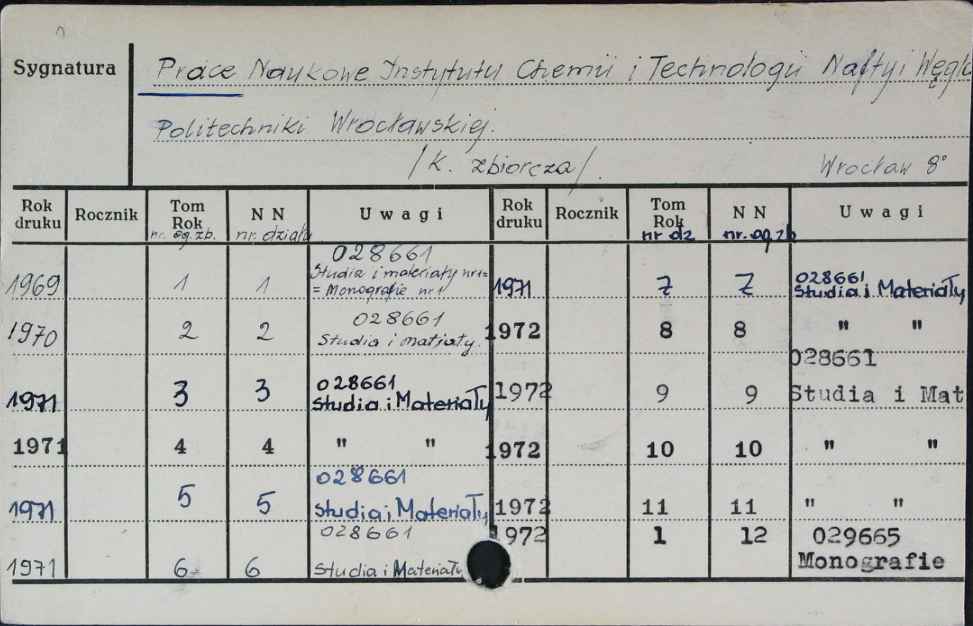 Sygnatura Prace Naukowe Instytutu Chemii i Technologii Nafty i Węgla
Politechniki Wrocławskiej.
/K. zbiorcza/. Wrocław 8°
Rok druku Rocznik Tom Rok nr. og. zb. N N nr. działu Uwagi
1969 1 1 028661 Studia i materiały nr 1 = = Monografie nr 1
1970 2 2 028661 Studia i matjały.
1971 3 3 028661 Studia i Materiały
1971 4 4 " "
1971 5 5 028661 Studia i Materiały
1971 6 6 028661 Studia i Materiały
Rok druku Rocznik Tom Rok nr dz N N nr. og. zb Uwagi
1971 7 7 028661 Studia i Materiały
1972 8 8 " "
1972 9 9 028661 Studia i Mat
1972 10 10 " "
1972 11 11 " "
1972 1 12 029665 Monografie